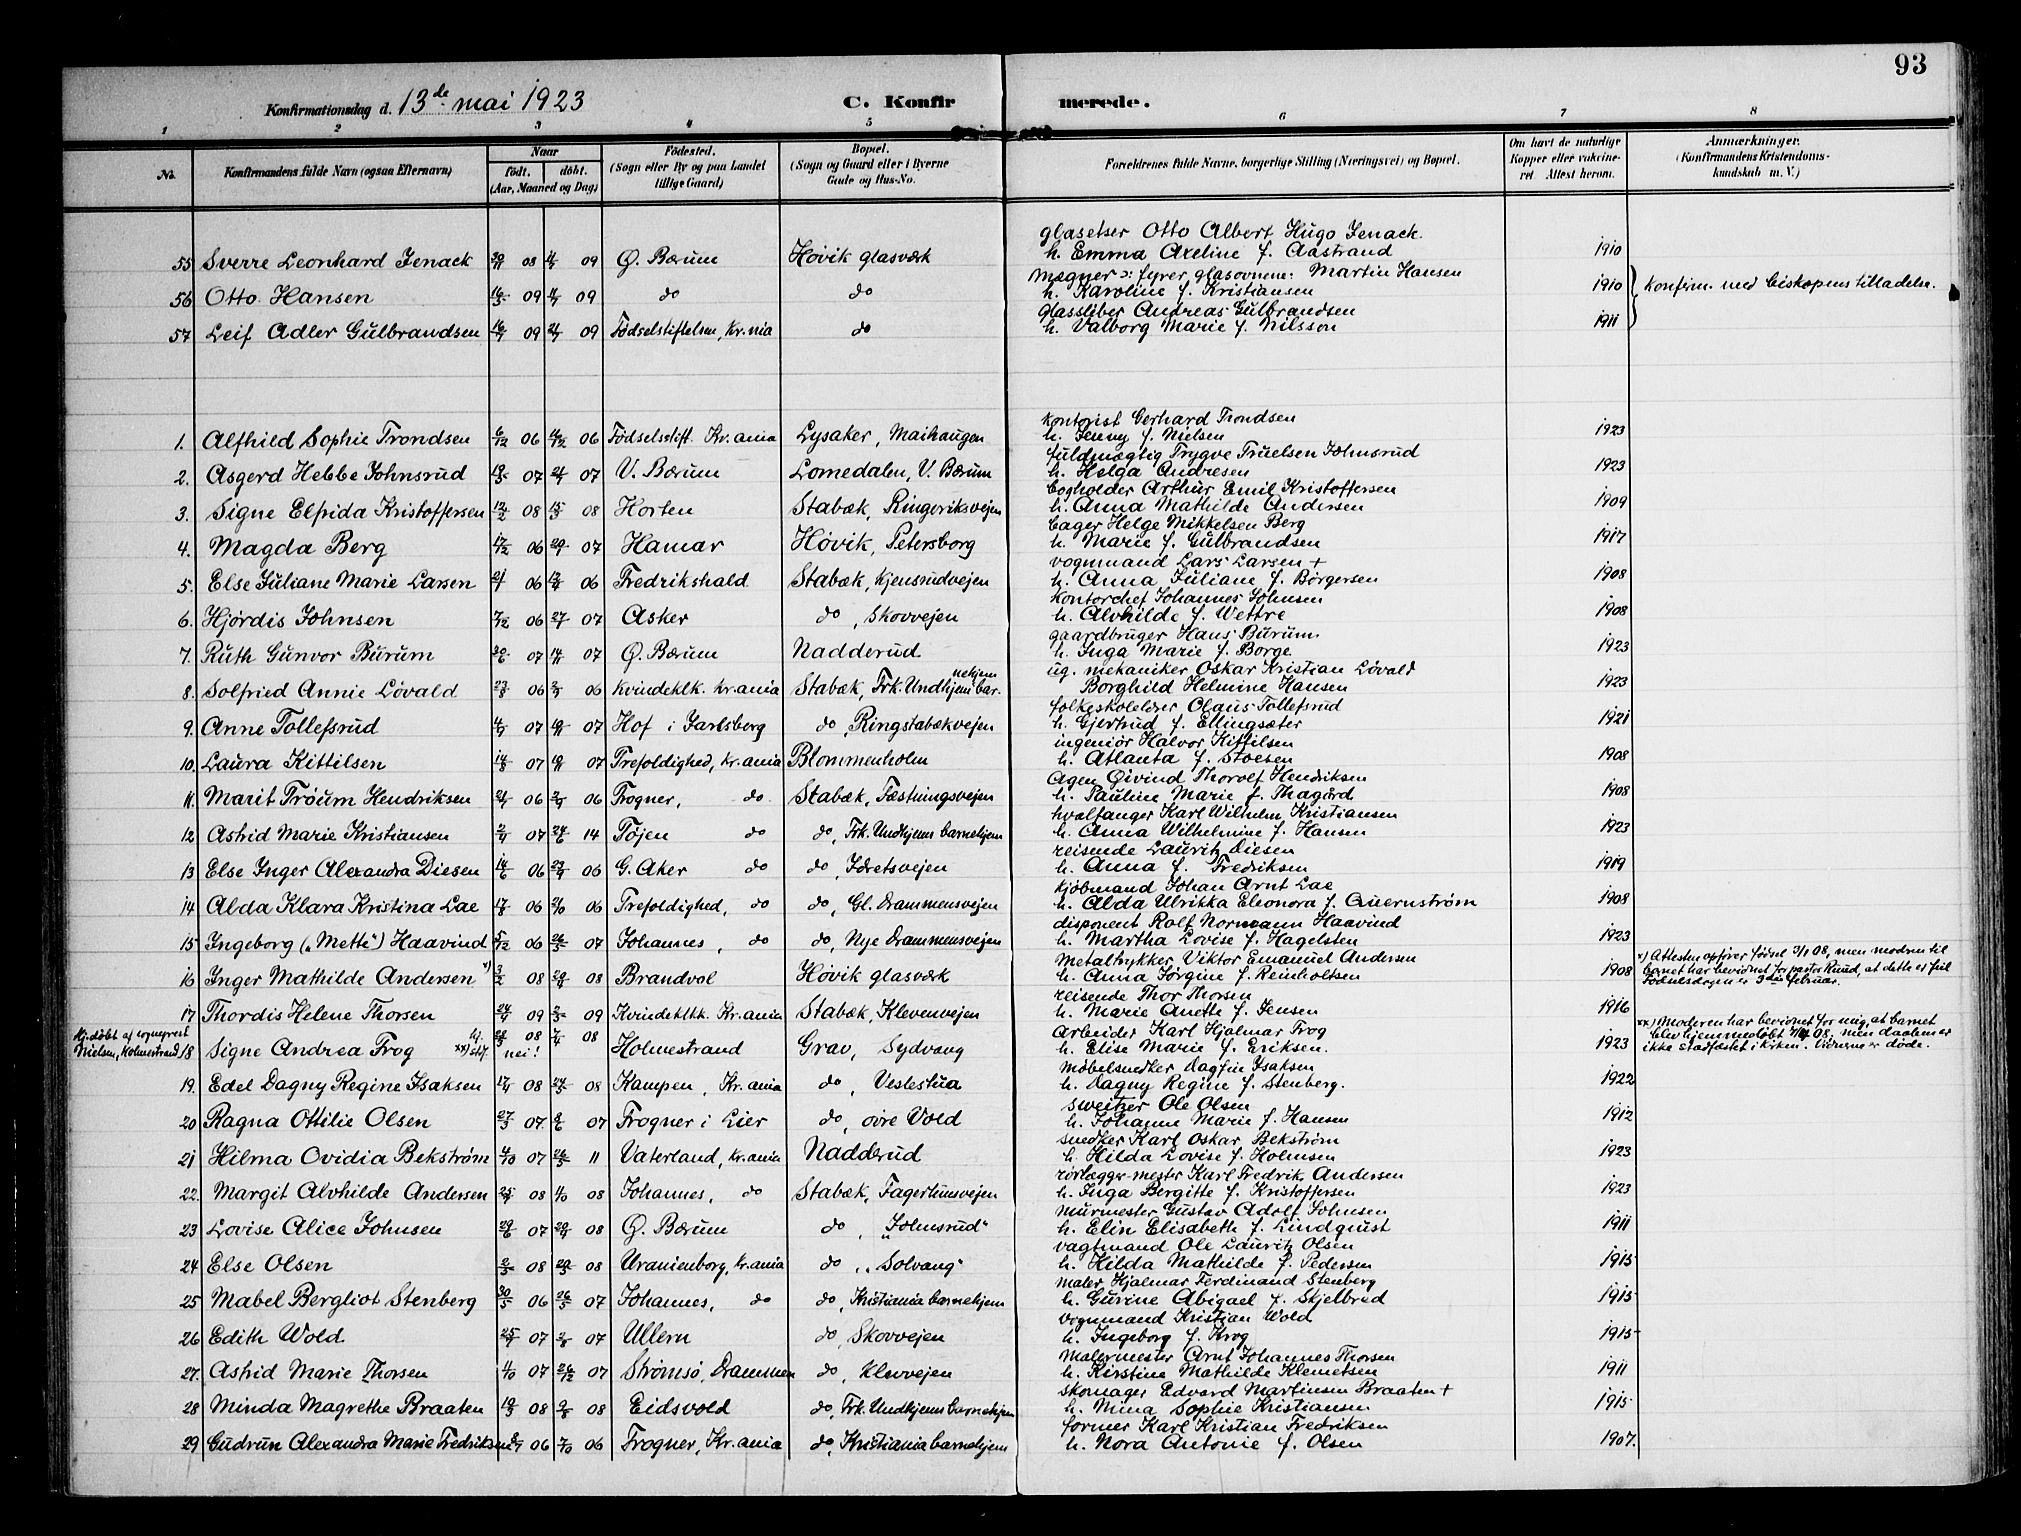 93
Konfirmationsdag d. 13de mai 1923 C. Konfirmerede.
1 2 3 4 5 6 7 8
No. Konfirmandens fulde Navn (ogsaa Efternavn) Naar født. døbt. (Aar, Maaned og Dag) Fødested. (Sogn eller By og paa Landet tillige Gaard) Bopæl. (Sogn og Gaard eller i Byerne Gade og Hus-No. Forældrenes fulde Navne, borgerlige Stilling (Næringsvei) og Bopæl. Om havt de naturlige Kopper eller vaccineret. Attest herom. Anmærkninger. (Konfirmandens Kristendomskundskab m. V.)
glasetser Otto Albert Hugo Jenack.
55 Sverre Leonhard Jenack 08 09 Ø. Bærum Høvik glasværk h. Emma Axeline f. Aastrand 1910
mægner ɔ: fyrer glasovnene: Martin Hansen
56 Otto Hansen 16/5 09 09 do do h. Karoline f. Kristiansen 1910 konfirm. med biskopens tilladelse.
glassliber Andreas Gulbrandsen
57 Leif Adler Gulbrandsen 09 09 Fødselstiftelsen, Kr.nia do h. Valborg Marie f. Nilsson 1911
kontorist Gerhard Trondsen
1. Alfhild Sophie Trondsen 6/12 06 06 Fødselsstift. Kr.ania Lysaker, Maihaugen h. Jenny f. Nielsen 1923
fuldmægtig Trygve Truelsen Johnsrud
2. Asgerd Hebbe Johnsrud 19/5 07 07 V. Bærum Lomedalen, V. Bærum h. Helga Andresen 1923
bogholder Arthur Emil Kristoffersen
3. Signe Elfrida Kristoffersen 12/2 08 15/3 08 Horten Stabæk, Ringeriksvejen h. Anna Mathilde Andersen 1909
bager Helge Mikkelsen Berg
4. Magda Berg 17/12 06 07 Hamar Høvik, Petersborg h. Marie f. Gulbrandsen 1917
vognmand Lars Larsen +
5. Else Juliane Marie Larsen 06 06 Fredrikshald Stabæk, Kjensrudvejen h. Anna Juliane f. Børgersen 1908
kontorchef Johannes Johnsen
6. Hjørdis Johnsen 7/12 06 07 Asker do, Skovvejen h. Alvhilde f. Wettre 1908
gaardbruger Hans Burum.
7. Ruth Gunvor Burum 07 07 Ø. Bærum Nadderud h. Inga Marie f. Borge 1923
ug. mekaniker Oskar Kristian Løvald
8. Solfried Annie Løvald 23/8 06 06 Kvindeklk. Kr.ania Stabæk, Frk. Undhjems barnehjem Borghild Helmine Hansen 1923
folkeskolelærer Olaus Tollefsrud
9. Anne Tollefsrud 07 07 Hof i Jarlsberg do, Ringstabækvejen h. Gjertrud f. Ellingsæter 1921
ingeniør Halvor Kittilsen
10. Laura Kittilsen 14/8 07 07 Trefoldighed, Kr.ania Blommenholm h. Atlanta f. Stoesen 1908
Agen Øivind Thorolf Hendriksen
11. Marit Trøum Hendriksen 06 06 Frogner, do Stabæk, Fæstningsvejen h. Pauline Marie f. Thagård 1908
hvalfanger Karl Wilhelm Kristiansen
12 Astrid Marie Kristiansen 07 14 Tøjen do do, Frk. Undhjems barnehjem h. Anna Wilhelmine f. Hansen 1923
reisende Lauritz Diesen
13 Else Inger Alexandra Diesen 14/6 06 06 G. Aker do do, Idretsvejen h. Anna f. Fredriksen 1919
kjøbmand Johan Arnt Lae
14 Alda Klara Kristina Lae 17/8 06 06 Trefoldighed, do do, Gl. Drammensvejen h. Alda Ulrikka Eleonora f. Quernstrøm 1908
disponent Rolf Normann Haavind
15 Ingeborg („Mette“) Haavind 5/12 06 07 Johannes, do do, Nye Drammensvejen h. Martha Lovise f. Hagelsten 1923
Metaltrykker Viktor Emanuel Andersen
16 Inger Mathilde Andersen x) 3/2 08 08 Brandvol Høvik glasværk h. Anna Jørgine f. Reinholtsen 1908 x) Attesten opfører fødsel 3/1 08, men modren til barnet har bevidnet for pastor Ruud, at dette er feil Fødselsdagen er 3die februar.
reisende Thor Thorsen
17 Thordis Helene Thorsen 09 09 Kvindeklk. Kr.ania Stabæk, Klevenvejen h. Marie Anette f. Jensen 1916
Hj.døbt af sogneprest Nielsen, Holmestrand
arbeider Karl Hjalmar Frog
18 Signe Andrea Frog xx) hj. 08 08 stf. nei! Holmestrand Grav, Sydvang h. Elise Marie f. Eriksen. 1923 xx) Moderen har bevidnet for mig, at barnet blev hjemmedøbt 08, men daaben er ikke stadfæstet i kirken. Vidnerne er døde.
Møbelsnedker Dagfin Isaksen
19. Edel Dagny Regine Isaksen 08 08 Kampen, Kr.ania do, Veslestua h. Dagny Regine f. Stenberg. 1922
sweitzer Ole Olsen
20 Ragna Ottilie Olsen 27/3 07 07 Frogner i Lier do, øvre Vold h. Johanne Marie f. Hansen 1912
snedker Karl Oskar Bekstrøm
21 Hilma Ovidia Bekstrøm 4/10 07 11 Vaterland, Kr.ania Nadderud h. Hilda Lovise f. Holmsen 1923
rørlægger-mester Karl Fredrik Andersen
22. Margit Alvhilde Andersen 08 08 Johannes, do Stabæk, Fagertunsvejen h. Inga Bergitte f. Kristoffersen 1923
murmester Gustav Adolf Johnsen
23 Lovise Alice Johnsen 07 08 Ø. Bærum do, „Solmsrud“ h. Elin Elisabeth f. Lindqvist 1911
vagtmand Ole Lauritz Olsen
24 Else Olsen 08 08 Uranienborg, Kr.ania do, „Solvang“ h. Hilda Mathilde f. Pedersen 1915
maler Hjalmar Ferdinand Stenberg
25 Mabel Bergliot Stenberg 30/5 06 07 Johannes, do do, Kristiania barnehjem h. Gurine Abigael f. Skjelbred 1915
vognmand Kristian Wold
26 Edith Wold 07 07 Ullern do, Skovvejen h. Ingeborg f. Krog 1915
Malermester Arnt Johannes Thorsen
27. Astrid Marie Thorsen 07 26/12 07 Strømsø, Drammen do, Klevvejen h. Kirstine Mathilde Klemetsen 1911
skomager Edvard Martinsen Braaten +
28 Minda Magrethe Braaten 19/3 08 08 Eidsvold do, Frk. Undhjems barnehjem h. Mina Sophie Kristiansen 1915
former Karl Kristian Fredriksen
29 Gudrun Alexandra Marie Fredriksen 06 06 Frogner, Kr.ania do, Kristiania barnehjem h. Nora Antonie f. Olsen 1907.